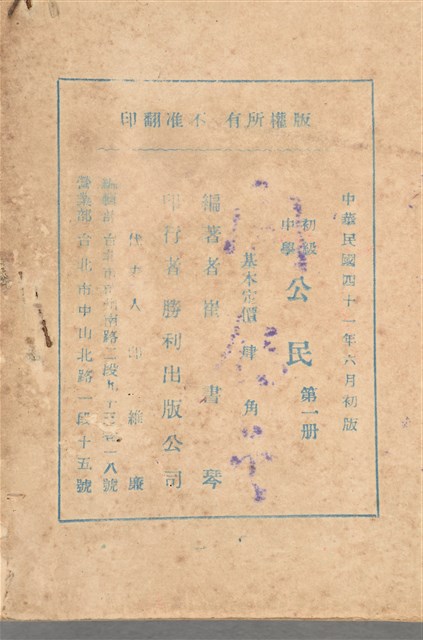 版權所有 不准翻印
中華民國四十一年六月初版
初級中學 公民 第一册
基本定價 肆角
編著者 崔書琴
印行者 勝利出版公司
人 維廉
台 南路二段九十三 八號
營業部 台北市中山北路一段十五號